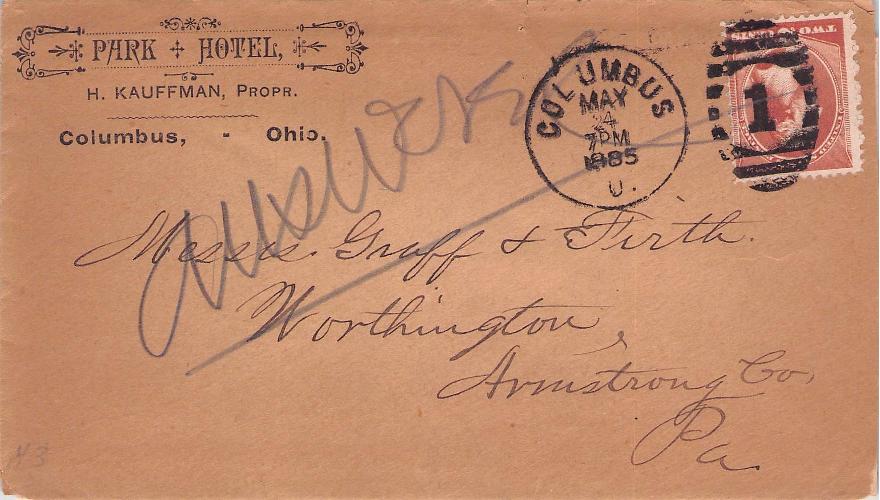 PARK HOTEL,
H. KAUFFMAN, PROPR.
Columbus, - Ohio.
COLUMBUS
MAY
24
7PM
1885
O.
1
TWO CENTS
Answered
Messrs. Graff & Firth.
Worthington,
Armstrong Co,
Pa
43